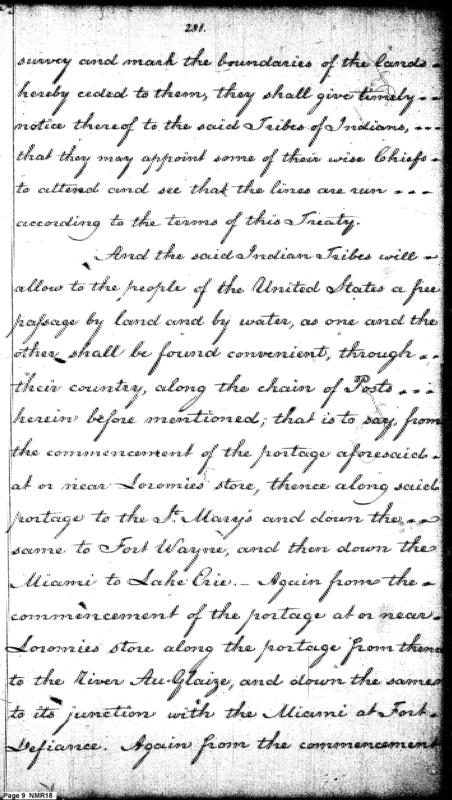 231.
survey and mark the boundaries of the lands -
hereby ceded to them, they shall give timely --
notice thereof to the said Tribes of Indians, ---
that they may appoint some of their wise Chiefs -
to attend and see that the lines are run ---
according to the terms of this Treaty.
And the said Indian Tribes will -
allow to the people of the United States a free
passage by land and by water, as one and the
other shall be found convenient, through --
their country, along the chain of Posts ---
herein before mentioned; that is to say, from
the commencement of the portage aforesaid -
at or near Loromies store, thence along said
portage to the St. Mary's and down the --
same to Fort Wayne, and then down the
Miami to Lake Erie. - Again from the -
commencement of the portage at or near -
Loromies store along the portage from thence
to the River Au-Glaize, and down the same
to its junction with the Miami at Fort -
Defiance. Again from the commencement
Page 9 NMR18